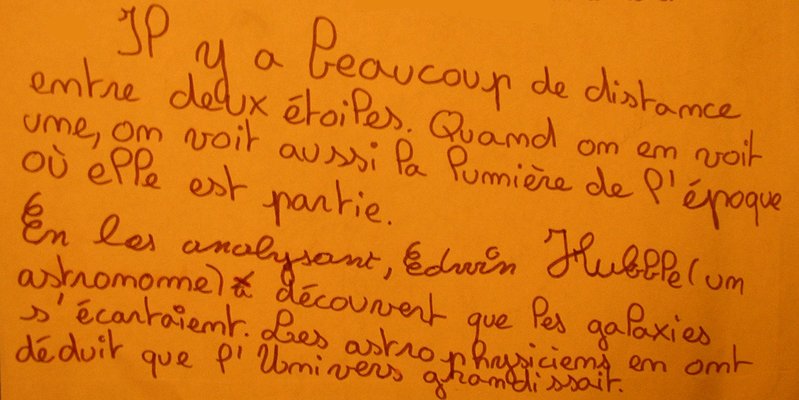 Il y a beaucoup de distance
entre deux étoiles. Quand on en voit
une, on voit aussi la lumière de l'époque
où elle est partie.
En les analysant, Edwin Hubble (un
astronome) a découvert que les galaxies
s'écartaient. Les astrophysiciens en ont
déduit que l'Univers grandissait.